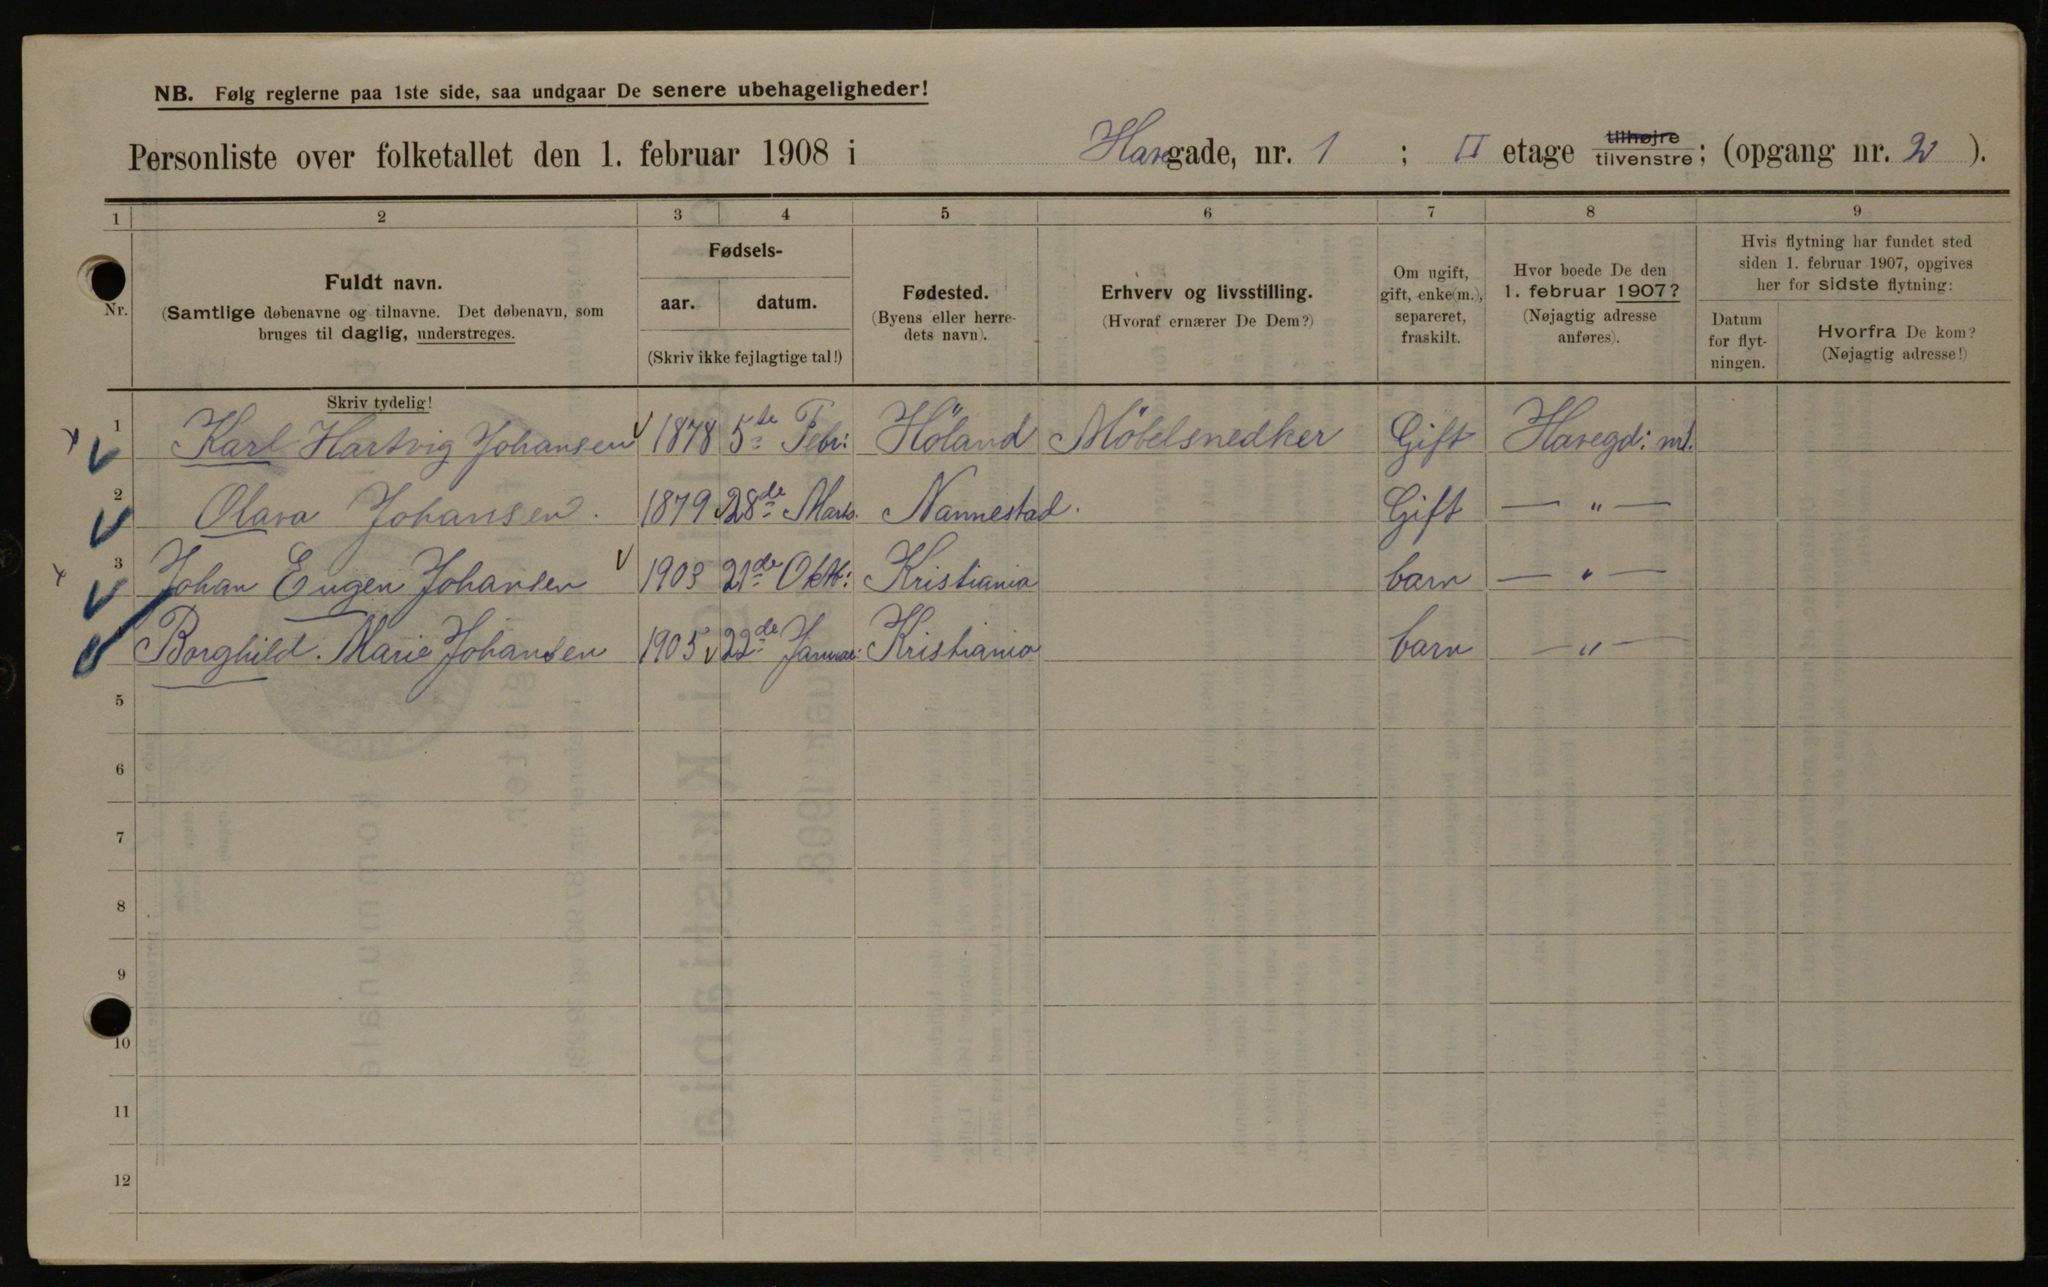 NB. Følg reglerne paa 1ste side, saa undgaar De senere ubehageligheder!
Personliste over folketallet den 1. februar 1908 i Havegade, nr. 1 ; II etage tilhøjre tilvenstre; (opgang nr. 2 ).
1 2 3 4 5 6 7 8 9
Nr.
Fuldt navn.
(Samtlige døbenavne og tilnavne. Det døbenavn, som
bruges til daglig, understreges.
Skriv tydelig!
Fødsels-
aar. datum.
(Skriv ikke fejlagtige tal!)
Fødested.
(Byens eller herre-
dets navn).
Erhverv og livsstilling.
(Hvoraf ernærer De Dem?)
Om ugift,
gift, enke(m.),
separeret,
fraskilt.
Hvor boede De den
1. februar 1907?
(Nøjagtig adresse
anføres).
Hvis flytning har fundet sted
siden 1. februar 1907, opgives
her for sidste flytning:
Datum
for flyt-
ningen.
Hvorfra De kom?
(Nøjagtig adresse!)
1 Karl Hartvig Johansen 1878 5te Febr: Höland Möbelsnedker Gift Havegd: nr1.
2 Olava Johansen. 1879 28de Marts. Nannestad. Gift — " —
3 Johan Eugen Johansen 1903 21de Oktb: Kristiania barn — " —
Borghild. Marie Johansen 1905 22de Januar: Kristiania barn — " —
5
6
7
8
9
10
11
12